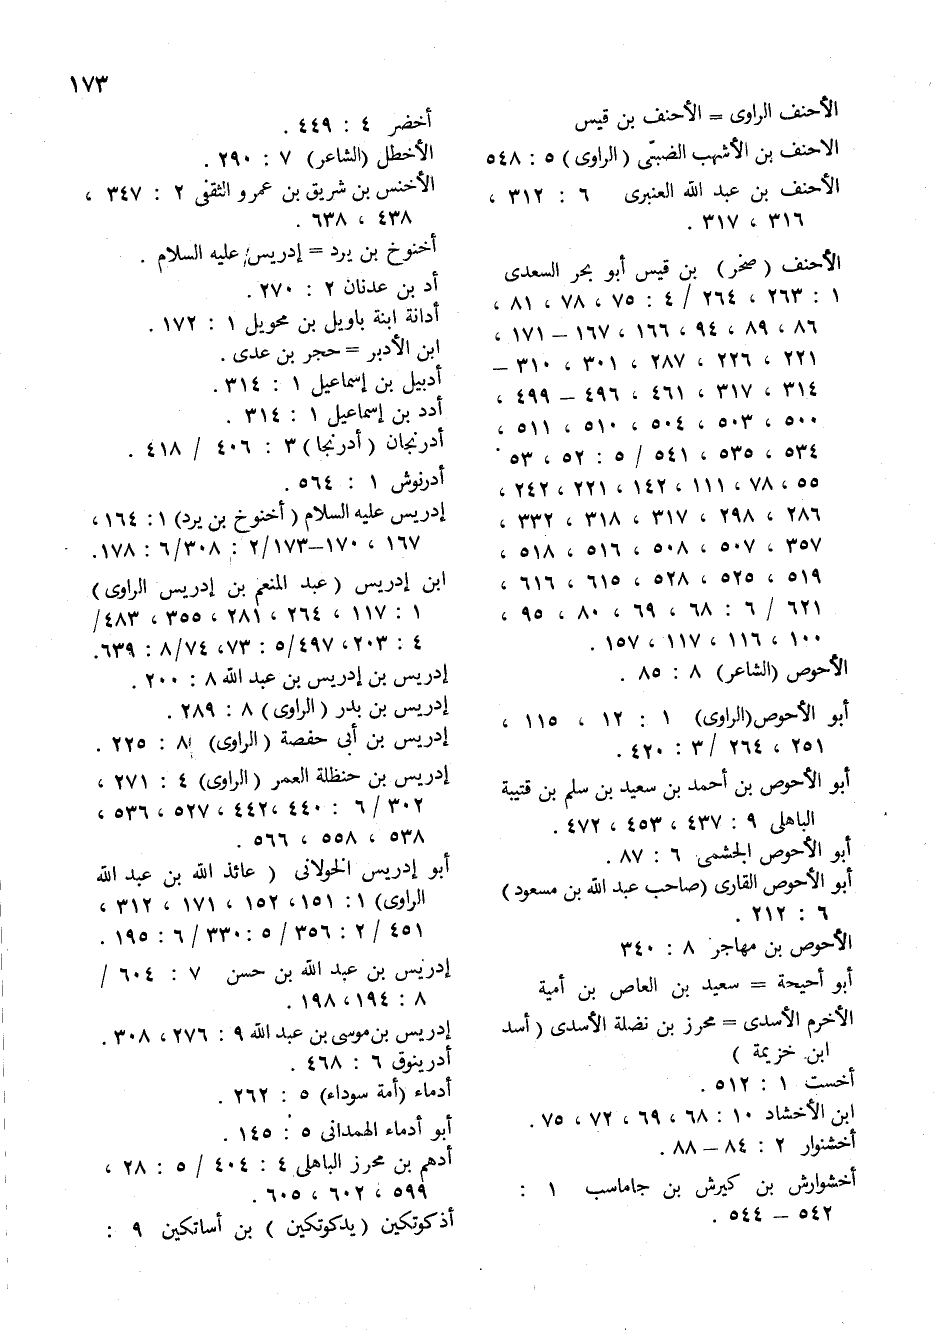 ١٧٣
الأحنف الراوى = الأحنف بن قيس
الاحنف بن الأشهب الضبّى ( الراوى ) ٥ : ٥٤٨
الأحنف بن عبد الله العنبرى ٦ : ٣١٢ ،
٣١٦ ، ٣١٧ .
الأحنف ( صخر ) بن قيس أبو بحر السعدى
١ : ٢٦٣ ، ٢٦٤ / ٤ : ٧٥ ، ٧٨ ، ٨١ ،
٨٦ ، ٨٩ ، ٩٤ ، ١٦٦ ، ١٦٧ – ١٧١ ،
٢٢١ ، ٢٢٦ ، ٢٨٧ ، ٣٠١ ، ٣١٠ –
٣١٤ ، ٣١٧ ، ٤٦١ ، ٤٩٦ – ٤٩٩ ،
٥٠٠ ، ٥٠٣ ، ٥٠٤ ، ٥١٠ ، ٥١١ ،
٥٣٤ ، ٥٣٥ ، ٥٤١ / ٥ : ٥٢ ، ٥٣
٥٥ ، ٧٨ ، ١١١ ، ١٤٢ ، ٢٢١ ، ٢٤٢ ،
٢٨٦ ، ٢٩٨ ، ٣١٧ ، ٣١٨ ، ٣٣٢ ،
٣٥٧ ، ٥٠٧ ، ٥٠٨ ، ٥١٦ ، ٥١٨ ،
٥١٩ ، ٥٢٥ ، ٥٢٨ ، ٦١٥ ، ٦١٦ ،
٦٢١ / ٦ : ٦٨ ، ٦٩ ، ٨٠ ، ٩٥ ،
١٠٠ ، ١١٦ ، ١١٧ ، ١٥٧ .
الأحوص (الشاعر) ٨ : ٨٥ .
أبو الأحوص(الراوى) ١ : ١٢ ، ١١٥ ،
٢٥١ ، ٢٦٤ / ٣ : ٤٢٠ .
أبو الأحوص بن أحمد بن سعيد بن سلم بن قتيبة
الباهلى ٩ : ٤٣٧ ، ٤٥٣ ، ٤٧٢ .
أبو الأحوص الجشمى ٦ : ٨٧ .
أبو الأحوص القارى (صاحب عبد الله بن مسعود )
٦ : ٢١٢ .
الأحوص بن مهاجر ٨ : ٣٤٠
أبو أحيحة = سعيد بن العاص بن أمية
الأخرم الأسدى = محرز بن نضلة الأسدى ( أسد
ابن خزيمة )
أخست ١ : ٥١٢ .
ابن الأخشاد ١٠ : ٦٨ ، ٦٩ ، ٧٢ ، ٧٥ .
أخشنوار ٢ : ٨٤ – ٨٨ .
أخشوارش بن كيرش بن جاماسب ١ :
٥٤٢ – ٥٤٤ .
أخضر ٤ : ٤٤٩ .
الأخطل (الشاعر) ٧ : ٢٩٠ .
الأخنس بن شريق بن عمرو الثقفى ٢ : ٣٤٧ ،
٤٣٨ ، ٦٣٨ .
أخنوخ بن يرد = إدريس عليه السلام .
أد بن عدنان ٢ : ٢٧٠ .
أدانة ابنة باويل بن محويل ١ : ١٧٢ .
ابن الأدبر = حجر بن عدى .
أدبيل بن إسماعيل ١ : ٣١٤ .
أدد بن إسماعيل ١ : ٣١٤ .
أدرنجان ( أدرنجا) ٣ : ٤٠٦ / ٤١٨ .
أدرنوش ١ : ٥٦٤ .
إدريس عليه السلام ( أخنوخ بن يرد) ١ : ١٦٤ ،
١٦٧ ، ١٧٠–١٧٣/ ٢ : ٣٠٨/ ٦ : ١٧٨.
ابن إدريس ( عبد المنعم بن إدريس الراوى )
١ : ١١٧ ، ٢٦٤ ، ٢٨١ ، ٣٥٥ ، ٤٨٣/
٤ : ٢٠٣، ٤٩٧/ ٥ : ٧٣، ٧٤/ ٨ : ٦٣٩.
إدريس بن إدريس بن عبد الله ٨ : ٢٠٠ .
إدريس بن بدر ( الراوى ) ٨ : ٢٨٩ .
إدريس بن أبى حفصة ( الراوى) ٨ : ٢٢٥ .
إدريس بن حنظلة العمر ( الراوى) ٤ : ٢٧١ ،
٣٠٢ / ٦ : ٤٤٠ ،٤٤٢ ، ٥٢٧ ، ٥٣٦ ،
٥٣٨ ، ٥٥٨ ، ٥٦٦ .
أبو إدريس الخولانى ( عائذ الله بن عبد الله
الراوى) ١ : ١٥١، ١٥٢ ، ١٧١ ، ٣١٢ ،
٤٥١ / ٢ : ٣٥٦ / ٥ : ٣٣٠ / ٦ : ١٩٥ .
إدريس بن عبد الله بن حسن ٧ : ٦٠٤ /
٨ : ١٩٤، ١٩٨ .
إدريس بن موسى بن عبد الله ٩ : ٢٧٦ ، ٣٠٨ .
أدرينوق ٦ : ٤٦٨ .
أدماء (أمة سوداء) ٥ : ٢٦٢ .
أبو أدماء الهمدانى ٥ : ١٤٥ .
أدهم بن محرز الباهلى ٤ : ٤٠٤ / ٥ : ٢٨ ،
٥٩٩ ، ٦٠٢ ، ٦٠٥ .
أذكوتكين ( يدكوتكين ) بن أساتكين ٩ :